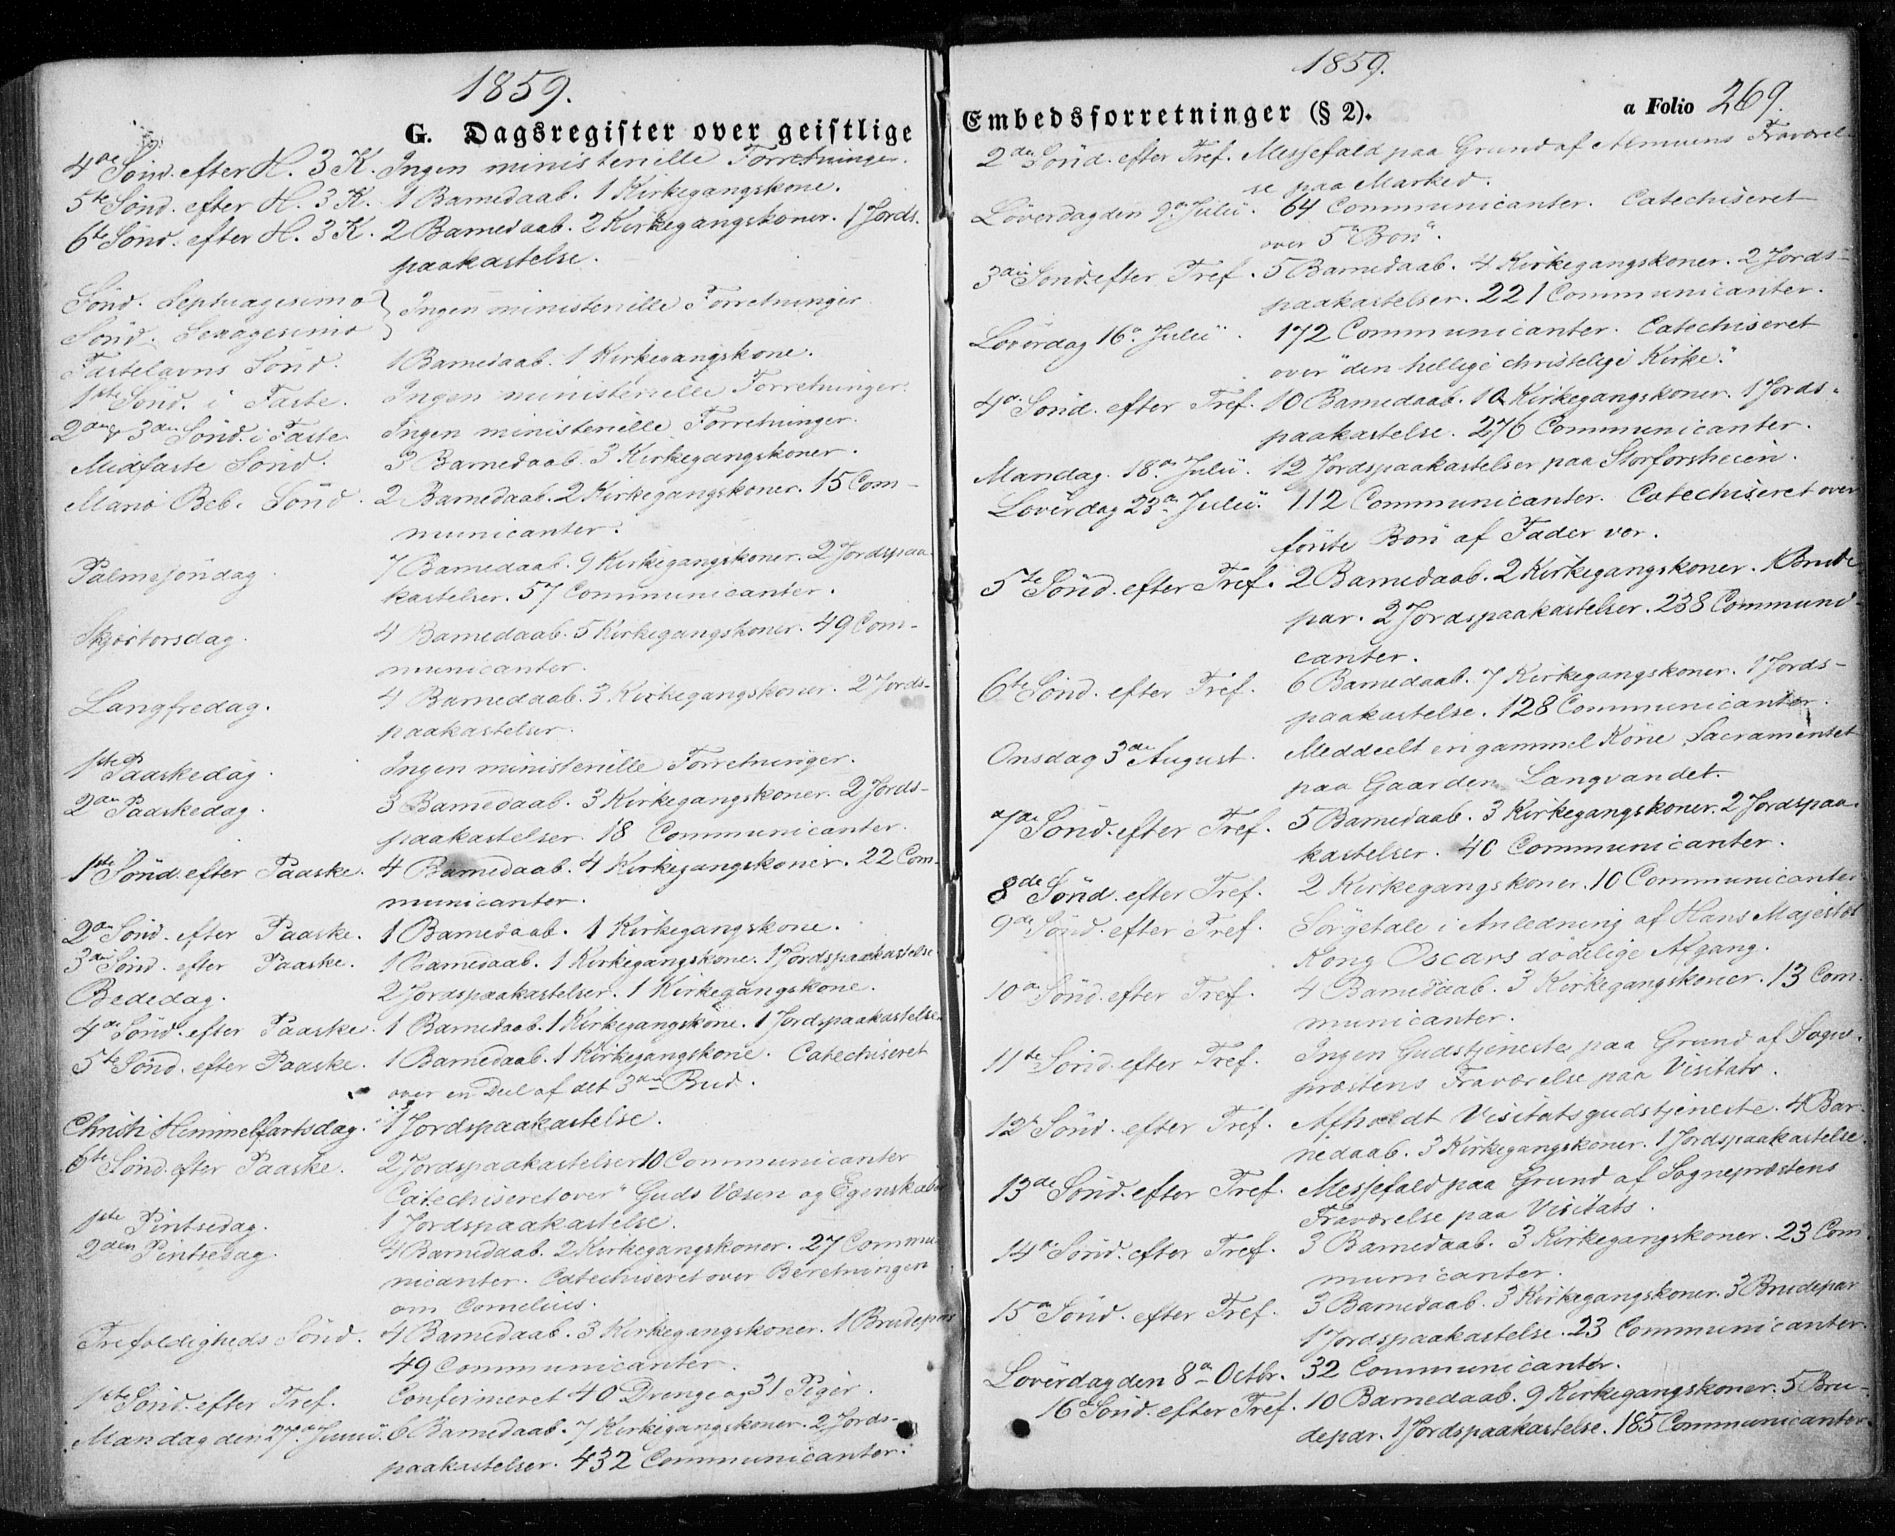 1859.
G. Dagsregister over geistlige
4de Sönd. efter H. 3 K. Ingen ministerielle Forretninger.
5te Sönd. efter H. 3 K. 1 Barnedaab. 1 Kirkegangskone.
6te Sönd. efter H. 3 K. 2 Barnedaab. 2 Kirkegangskoner. 1 Jords-
paakastelse.
Sönd. Septuagesima } Ingen ministerielle Forretninger.
Sönd. Sexagesima
Fastelavns Sönd. 1 Barnedaab. 1 Kirkegangskone.
1ste Sönd. i Faste. Ingen ministerielle Forretninger.
2den & 3die Sönd. i Faste Ingen ministerielle Forretninger.
Midfaste Sönd. 3 Barnedaab. 3 Kirkegangskoner.
Mariæ Beb. Sönd. 2 Barnedaab. 2 Kirkegangskoner. 15 Com-
municanter.
Palmesöndag. 7 Barnedaab. 9 Kirkegangskoner. 2 Jordspaa-
kastelser. 57 Communicanter.
Skjærtorsdag. 4 Barnedaab. 5 Kirkegangskoner. 49 Com-
municanter.
Langfredag. 4 Barnedaab. 3 Kirkegangskoner. 2 Jords-
paakastelser.
1ste Paaskedag. Ingen ministerielle Forretninger.
2den Paaskedag. 3 Barnedaab. 3 Kirkegangskoner. 2 Jords-
paakastelser. 18 Communicanter.
1ste Sönd. efter Paaske. 4 Barnedaab. 4 Kirkegangskoner. 22 Com-
municanter.
2den Sönd. efter Paaske. 1 Barnedaab. 1 Kirkegangskone.
3die Sönd. efter Paaske. 1 Barnedaab. 1 Kirkegangskone. 1 Jordspaakastelse
Bededag. 2 Jordspaakastelser. 1 Kirkegangskone.
4de Sönd. efter Paaske. 1 Barnedaab. 1 Kirkegangskone. 1 Jordspaakastelse.
5te Sönd. efter Paaske. 1 Barnedaab. 1 Kirkegangskone. Catechiseret
over en Deel af det 3die Bud.
Christi Himmelfartsdag. 1 Jordspaakastelse.
6te Sönd. efter Paaske. 2 Jordspaakastelser 10 Communicanter
Catechiseret over "Guds Væsen og Egenskaber
1ste Pintsedag. 1 Jordspaakastelse.
2den Pintsedag. 4 Barnedaab. 2 Kirkegangskoner. 27 Commu-
nicanter. Catechiseret over Beretningen
om Cornelius.
Trefoldigheds Sönd. 4 Barnedaab. 3 Kirkegangskoner. 1 Brudepar
49 Communicanter.
1ste Sönd. efter Tref. Confirmeret 40 Drenge og 31 Piger.
Mandag den 27de Junii. 6 Barnedaab. 7 Kirkegangskoner. 2 Jords-
paakastelser. 432 Communicanter.
1859.
Embedsforretninger (§ 2).
a Folio 269.
2den Sönd. efter Tref. Messefald paa Grund af Almuens Fraværel-
se paa Marked.
Löverdag den 9de Julii. 64 Communicanter. Catechiseret
over 5te Bön".
3die Sönd. efter Tref. 5 Barnedaab. 4 Kirkegangskoner. 2 Jords-
paakastelser. 221 Communicanter.
Löverdag 16de Julii. 172 Communicanter. Catechiseret
over "den hellige christelige Kirke."
4de Sönd. efter Tref. 10 Barnedaab. 10 Kirkegangskoner. 1 Jords-
paakastelse. 276 Communicanter.
Mandag. 18de Julii. 12 Jordspaakastelser paa Storforsheien.
Löverdag 23de Julii. 112 Communicanter. Catechiseret over
förste Bön af Fader vor.
5te Sönd. efter Tref. 2 Barnedaab. 2 Kirkegangskoner. 1 Brude-
par. 2 Jordspaakastelser. 238 Communi-
canter.
6te Sönd. efter Tref. 6 Barnedaab. 7 Kirkegangskoner. 1 Jords-
paakastelse. 128 Communicanter.
Onsdag 3die August. Meddeelt en gammel Kone Sacramentet
paa Gaarden Langvandet.
7de Sönd. efter Tref. 5 Barnedaab. 3 Kirkegangskoner. 2 Jordspaa-
kastelser. 40 Communicanter.
8de Sönd. efter Tref. 2 Kirkegangskoner. 10 Communicanter
9de Sönd. efter Tref. Sörgetale i Anledning af Hans Majestæt
Kong Oscars dödelige Afgang.
10de Sönd. efter Tref. 4 Barnedaab. 3 Kirkegangskoner. 13 Com-
municanter.
11te Sönd. efter Tref. Ingen Gudstjeneste paa Grund af Sogne-
præstens Fraværelse paa Visitats.
12te Sönd. efter Tref. Afholdt Visitatsgudstjeneste. 4 Bar-
nedaab. 3 Kirkegangskoner. 1 Jordspaakastelse.
13de Sönd. efter Tref. Messefald paa Grund af Sognepræstens
Fraværelse paa Visitats.
14de Sönd. efter Tref. 3 Barnedaab. 3 Kirkegangskoner. 23 Com-
municanter.
15de Sönd. efter Tref. 3 Barnedaab. 3 Kirkegangskoner. 3 Brudepar
1 Jordspaakastelse. 23 Communicanter.
Löverdag den 8de Octbr. 32 Communicanter.
16de Sönd. efter Tref. 10 Barnedaab. 9 Kirkegangskoner. 5 Bru-
depar. 1 Jordspaakastelse. 185 Communicanter.